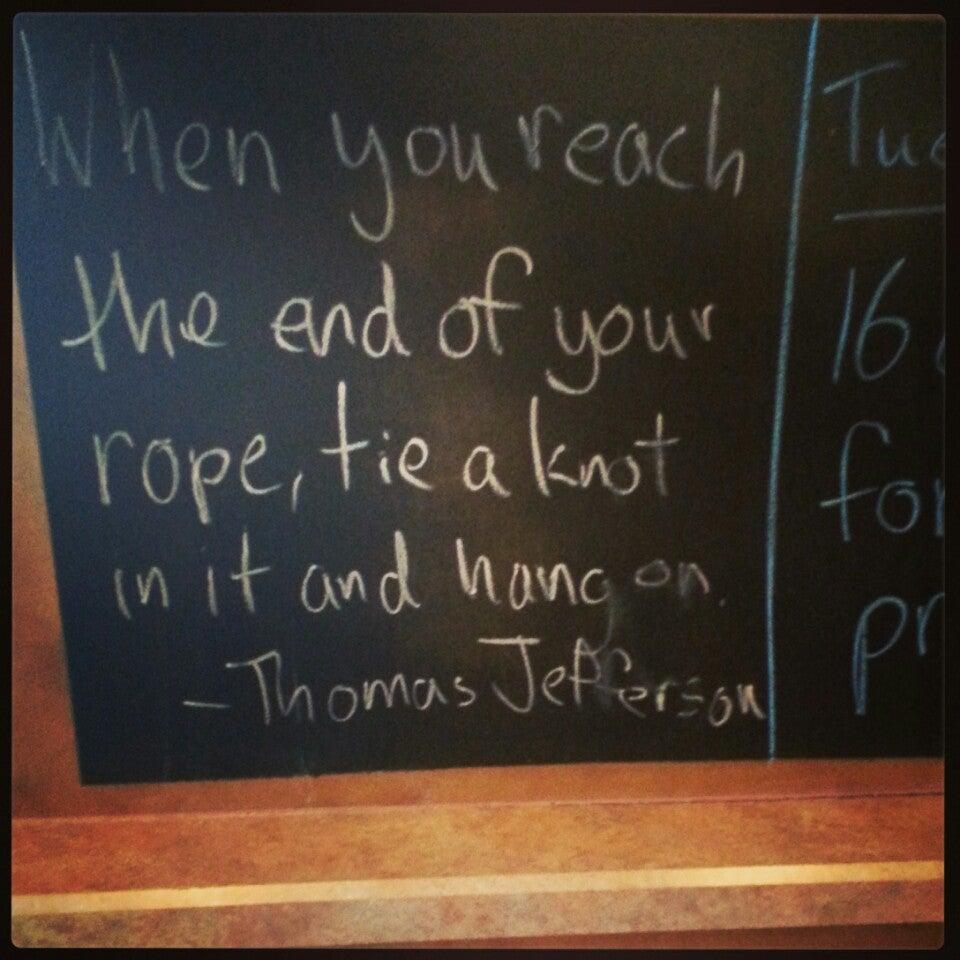 When you reach
the end of your
rope, tie a knot
in it and hang on.
- Thomas Jefferson
16
for